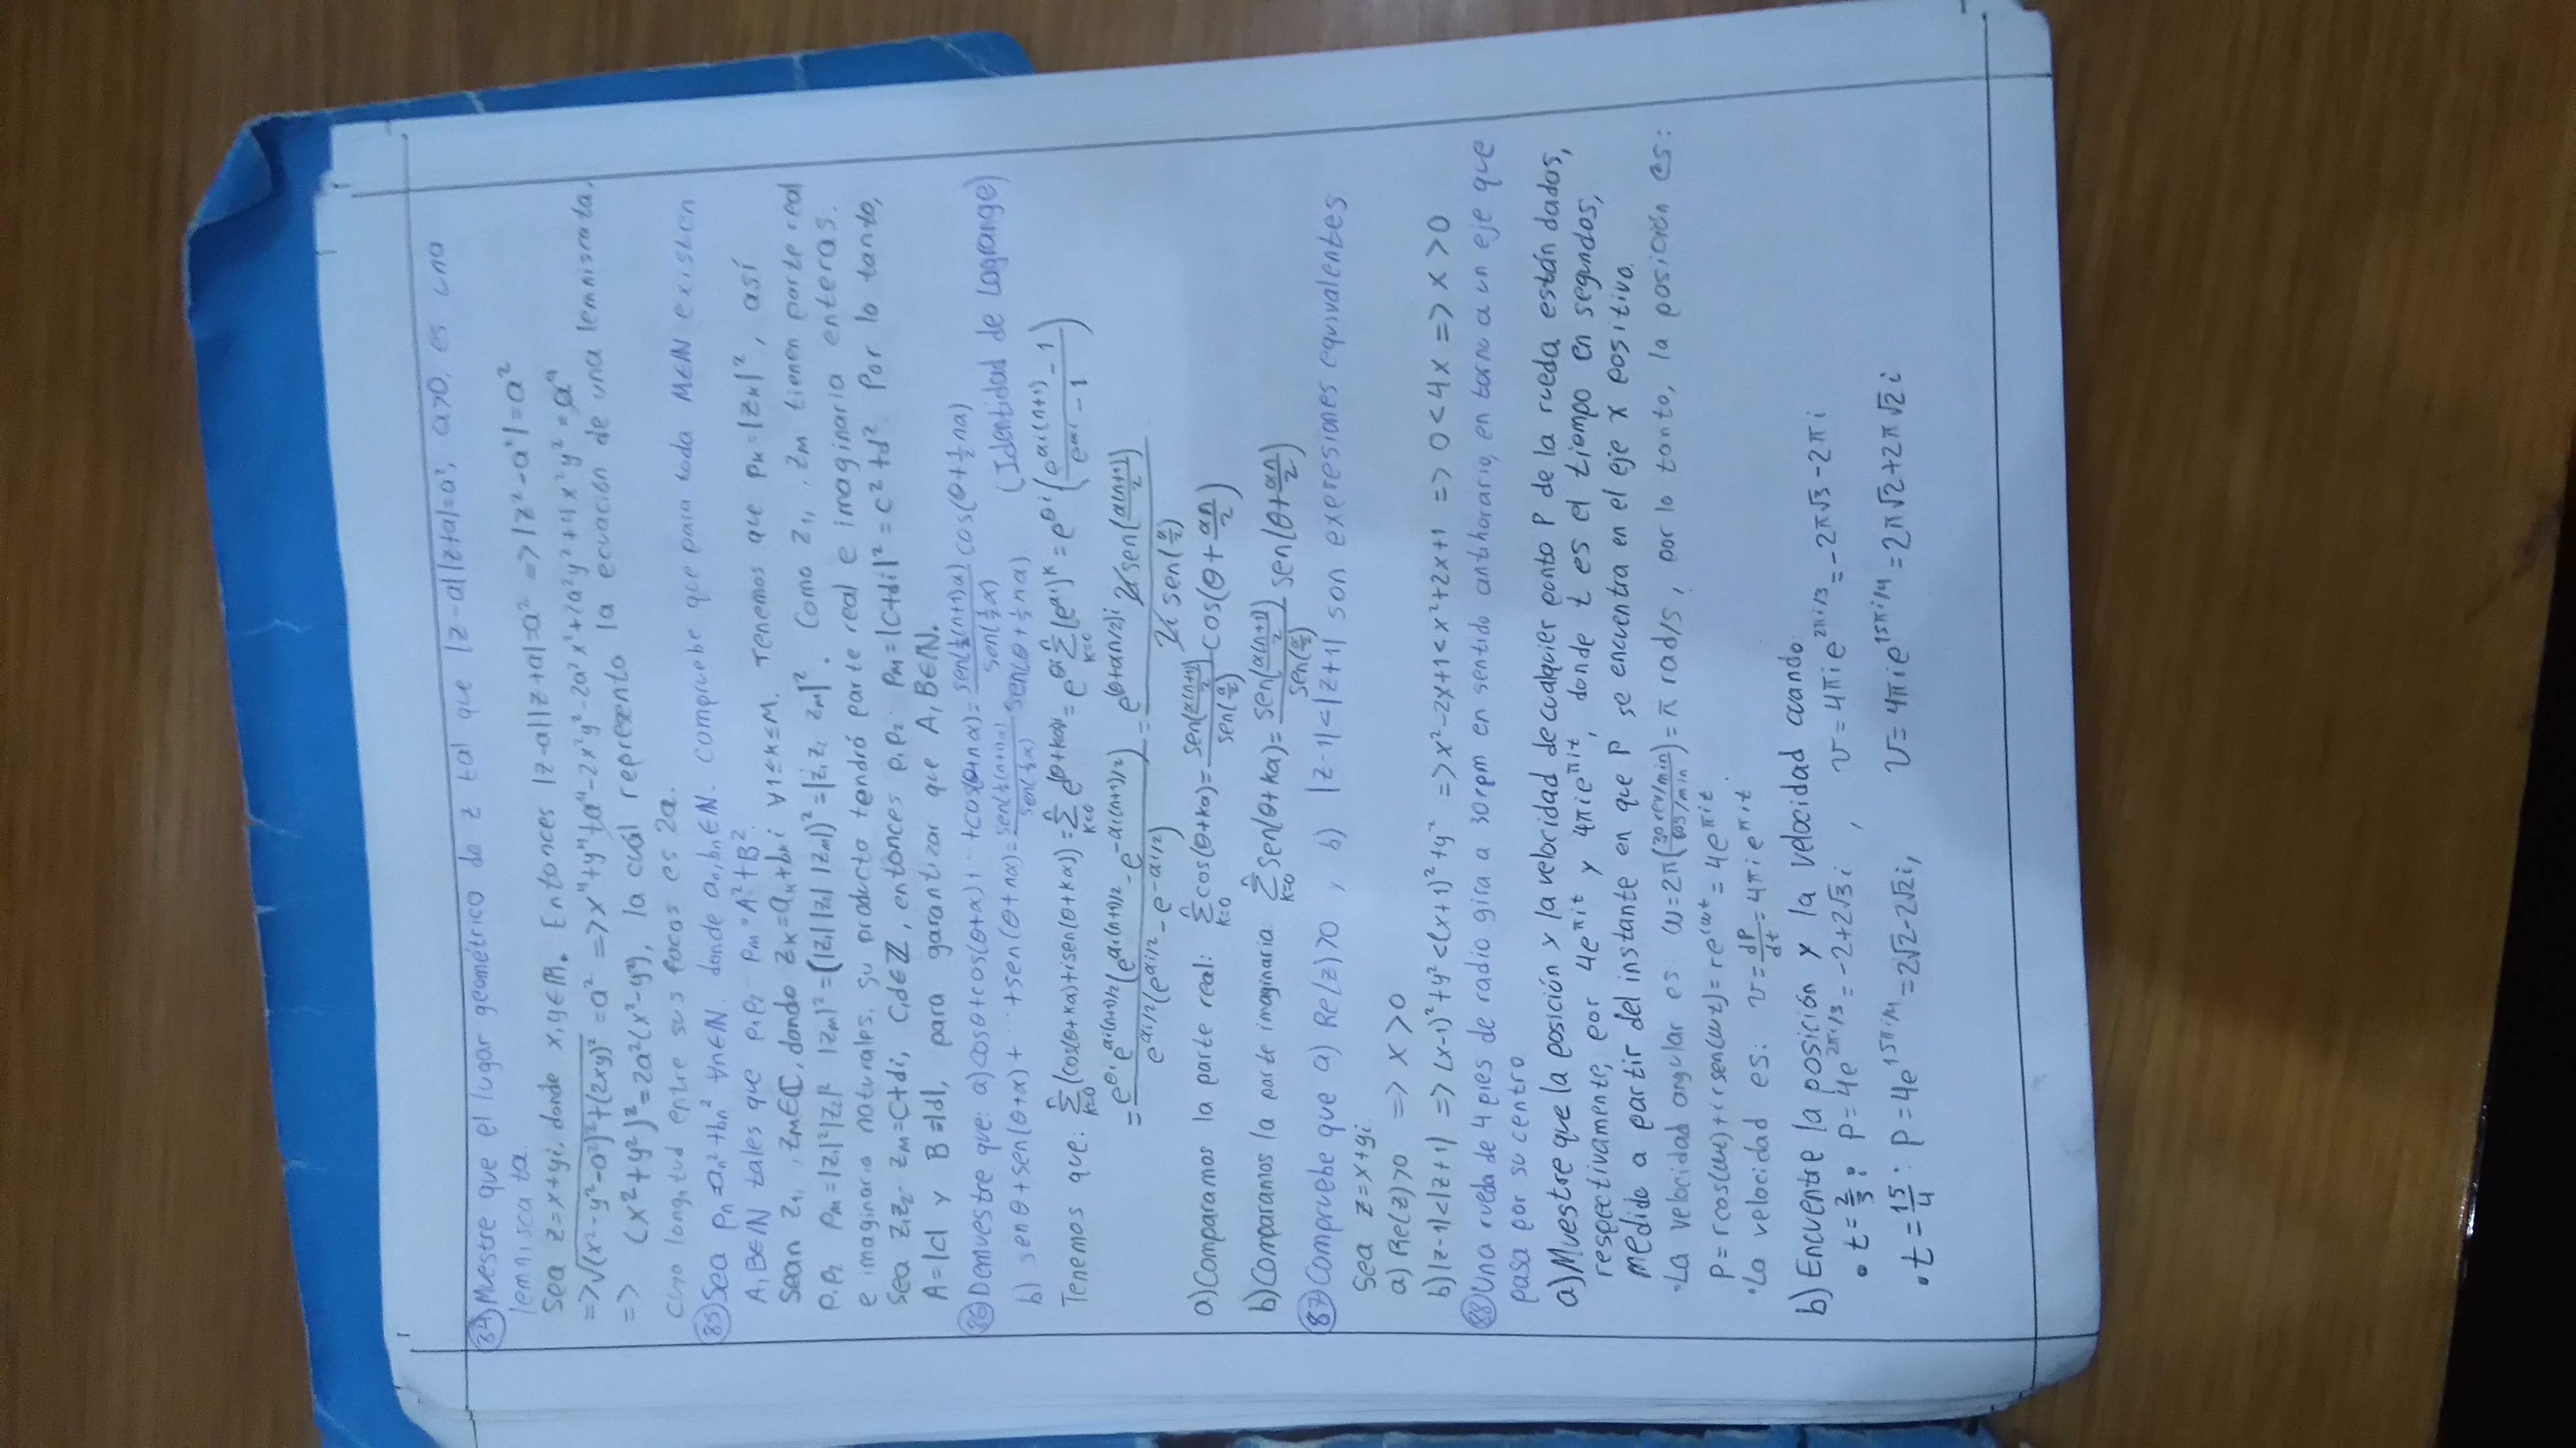 84) Muestre que el lugar geométrico de z tal que |z-a||z+a|=a², a>0, es una
lemniscata.
Sea z=x+yi, donde x,y∈ℝ. Entonces |z-a||z+a|=a² => |z²-a²|=a²
=> √((x²-y²-a²)²+(2xy)²) = a² => x⁴+y⁴+a⁴-2x²y²-2a²x²+2a²y²+4x²y² = a⁴
=> (x²+y²)²=2a²(x²-y²), la cuál representa la ecuación de una lemniscata,
cuya longitud entre sus focos es 2a.
85) Sea pₙ=aₙ²+bₙ² ∀n∈ℕ. donde aₙ,bₙ∈ℕ. Compruebe que para todo M∈ℕ existen
A,B∈ℕ tales que p₁p₂ pₘ=A²+B².
Sean z₁, ,zₘ∈ℂ, donde zₖ=aₖ+bₖi ∀1≤k≤M. Tenemos que pₖ=|zₖ|², así
p₁p₂ pₘ=|z₁|²|z₂|² |zₘ|²=(|z₁||z₂| |zₘ|)²=|z₁z₂ zₘ|². Como z₁, ,zₘ tienen parte real
e imaginaria naturales, su producto tendrá parte real e imaginaria enteras.
Sea z₁z₂ zₘ=c+di, c,d∈ℤ, entonces p₁p₂ pₘ=|c+di|²=c²+d². Por lo tanto,
A=|c| y B=|d|, para garantizar que A,B∈ℕ.
86) Demuestre que: a) cosθ+cos(θ+α)+ ··· +cos(θ+nα)=sen(½(n+1)α)/sen(½α) cos(θ+½nα)
b) senθ+sen(θ+α)+ ··· +sen(θ+nα)=sen(½(n+1)α)/sen(½α) sen(θ+½nα) (Identidad de Lagrange)
Tenemos que: ∑ₖ₌₀ⁿ(cos(θ+kα)+isen(θ+kα))=∑ₖ₌₀ⁿ e^((θ+kα)i)=e^(θi)∑ₖ₌₀ⁿ(e^(αi))^k=e^(θi)((e^(αi(n+1))-1)/(e^(αi)-1))
=e^(θi)e^(αi(n+1)/2)(e^(αi(n+1)/2)-e^(-αi(n+1)/2))/(e^(αi/2)(e^(αi/2)-e^(-αi/2)))=e^((θ+αn/2)i) 2i sen(α(n+1)/2)/(2i sen(α/2))
a) Comparamos la parte real: ∑ₖ₌₀ⁿcos(θ+kα)=sen(α(n+1)/2)/sen(α/2) cos(θ+αn/2)
b) Comparamos la parte imaginaria: ∑ₖ₌₀ⁿsen(θ+kα)=sen(α(n+1)/2)/sen(α/2) sen(θ+αn/2)
87) Compruebe que a) Re(z)>0 , b) |z-1|<|z+1| son expresiones equivalentes
Sea z=x+yi
a) Re(z)>0 => x>0
b) |z-1|<|z+1| => (x-1)²+y²<(x+1)²+y² => x²-2x+1<x²+2x+1 => 0<4x => x>0
88) Una rueda de 4 pies de radio gira a 30 rpm en sentido antihorario, en torno a un eje que
pasa por su centro
a) Muestre que la posición y la velocidad de cualquier punto P de la rueda están dados,
respectivamente, por 4e^(πit) y 4πie^(πit), donde t es el tiempo en segundos,
medido a partir del instante en que P se encuentra en el eje x positivo.
·La velocidad angular es ω=2π(30 rev/min / 60s/min)=π rad/s, por lo tanto, la posición es:
P=rcos(ωt)+irsen(ωt)=re^(iωt)=4e^(πit)
·La velocidad es: v=dP/dt=4πie^(πit)
b) Encuentre la posición y la velocidad cuando:
• t=2/3: P=4e^(2πi/3)=-2+2√3i , v=4πie^(2πi/3)=-2π√3-2πi
• t=15/4: P=4e^(15πi/4)=2√2-2√2i, v=4πie^(15πi/4)=2π√2+2π√2i